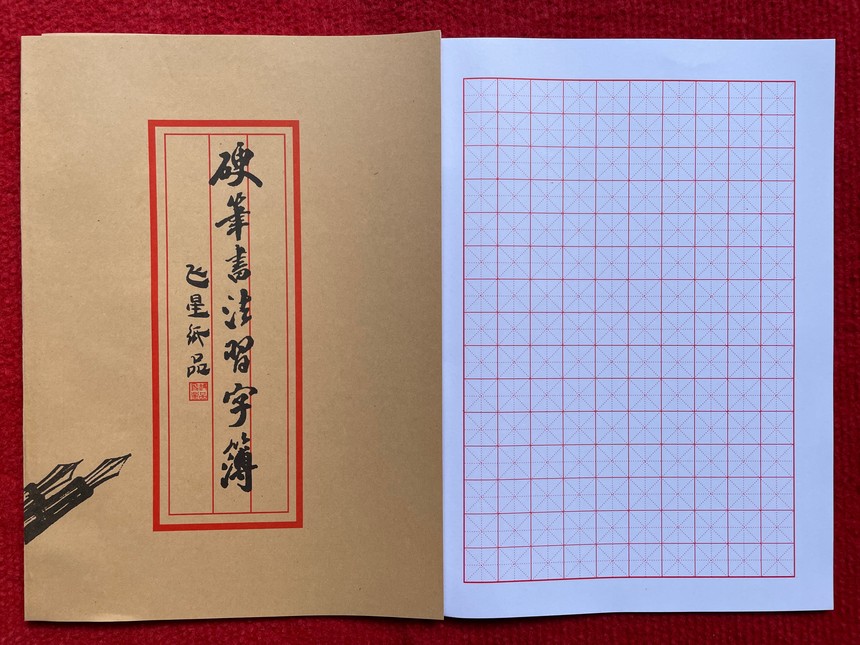 硬筆書法習字簿
飞星纸品